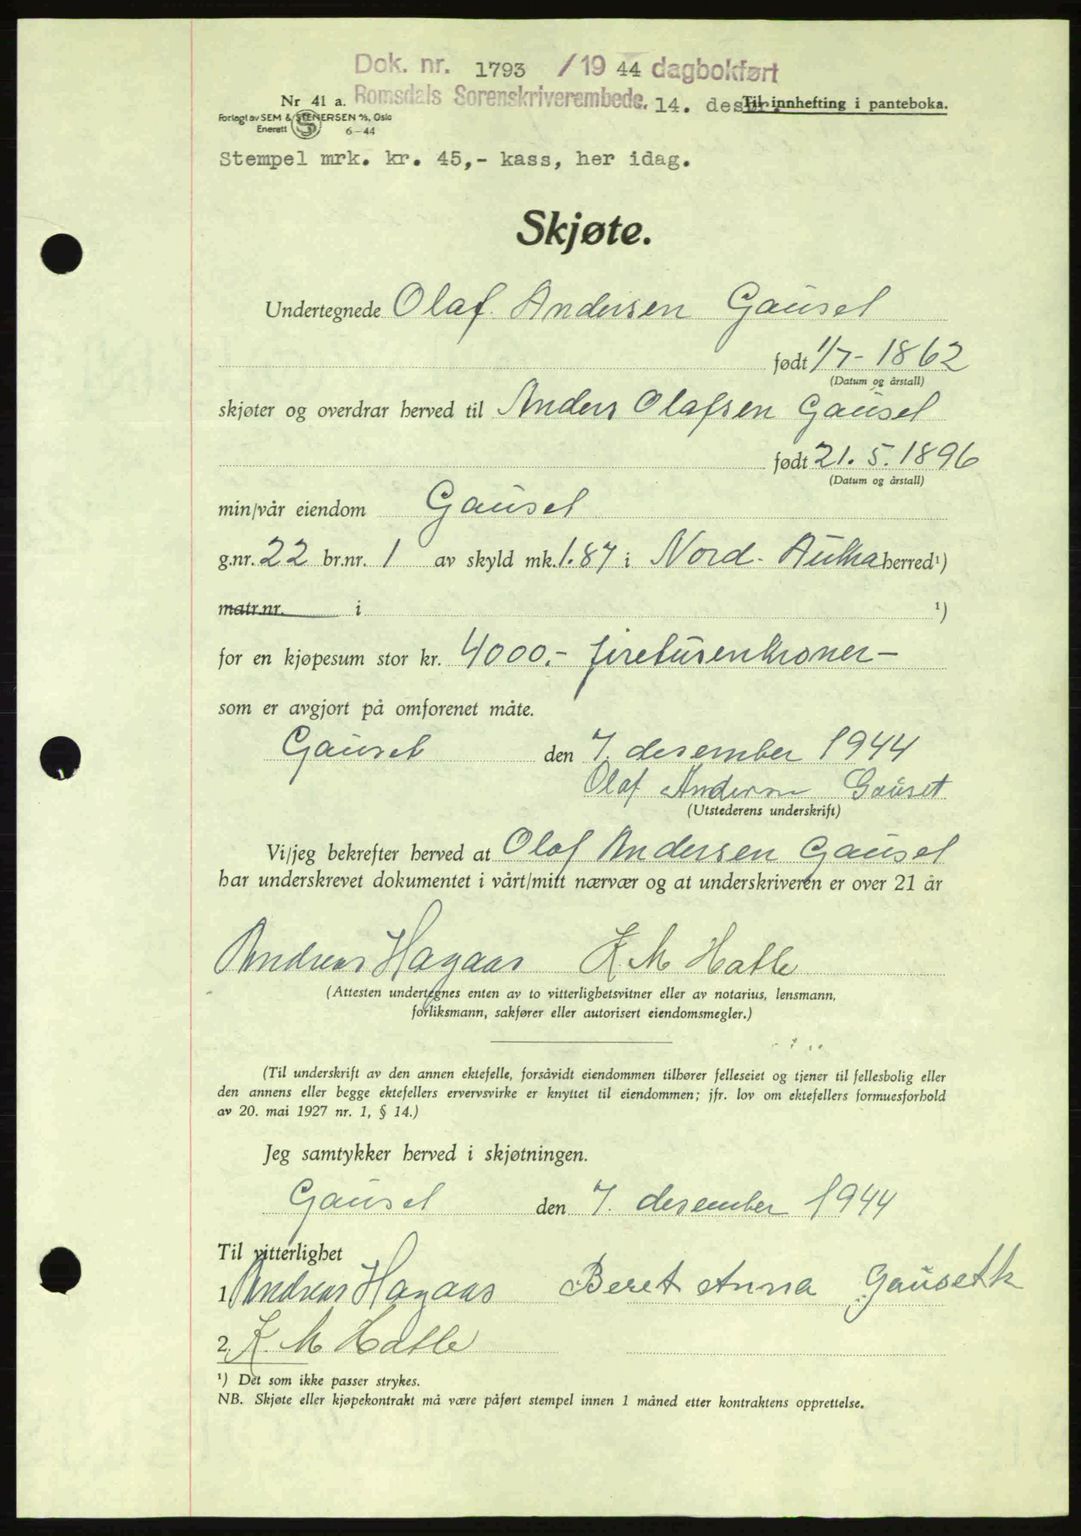 Dok. nr. 1793 /19 44 dagbokført
Nr 41 a. Romsdals Sorenskriverembede, 14. desbr. Til innhefting i panteboka.
Forlagt av SEM & STENERSEN A/S, Oslo
Enerett 6-44
Stempel mrk. kr. 45,- kass, her idag.
Skjøte.
Undertegnede Olaf Andersen Gausel
født 1/7- 1862
(Datum og årstall)
skjøter og overdrar herved til Anders Olafsen Gausel
født 21. 5. 1896
(Datum og årstall)
min/vår eiendom Gausel
g.nr. 22 br.nr. 1 av skyld mk. 1.87 i Nord-Aukra herred¹)
matr.nr. i ¹)
for en kjøpesum stor kr. 4000.- firetusenkroner-
som er avgjort på omforenet måte.
Gauset den 7. desember 1944
Olaf Andersen Gauset
(Utstederens underskrift)
Vi/jeg bekrefter herved at Olaf Andersen Gausel
har underskrevet dokumentet i vårt/mitt nærvær og at underskriveren er over 21 år
Andreas Hagaas K M Hatle
(Attesten undertegnes enten av to vitterlighetsvitner eller av notarius, lensmann,
forliksmann, sakfører eller autorisert eiendomsmegler.)
(Til underskrift av den annen ektefelle, forsåvidt eiendommen tilhører felleseiet og tjener til fellesbolig eller
den annens eller begge ektefellers ervervsvirke er knyttet til eiendommen; jfr. lov om ektefellers formuesforhold
av 20. mai 1927 nr. 1, § 14.)
Jeg samtykker herved i skjøtningen.
Gausel den 7. desember 1944
Til vitterlighet
1. Andreas Hagaas Beret Anna Gauseth
2. K. M Hatle
¹) Det som ikke passer strykes.
NB. Skjøte eller kjøpekontrakt må være påført stempel innen 1 måned etter kontraktens opprettelse.